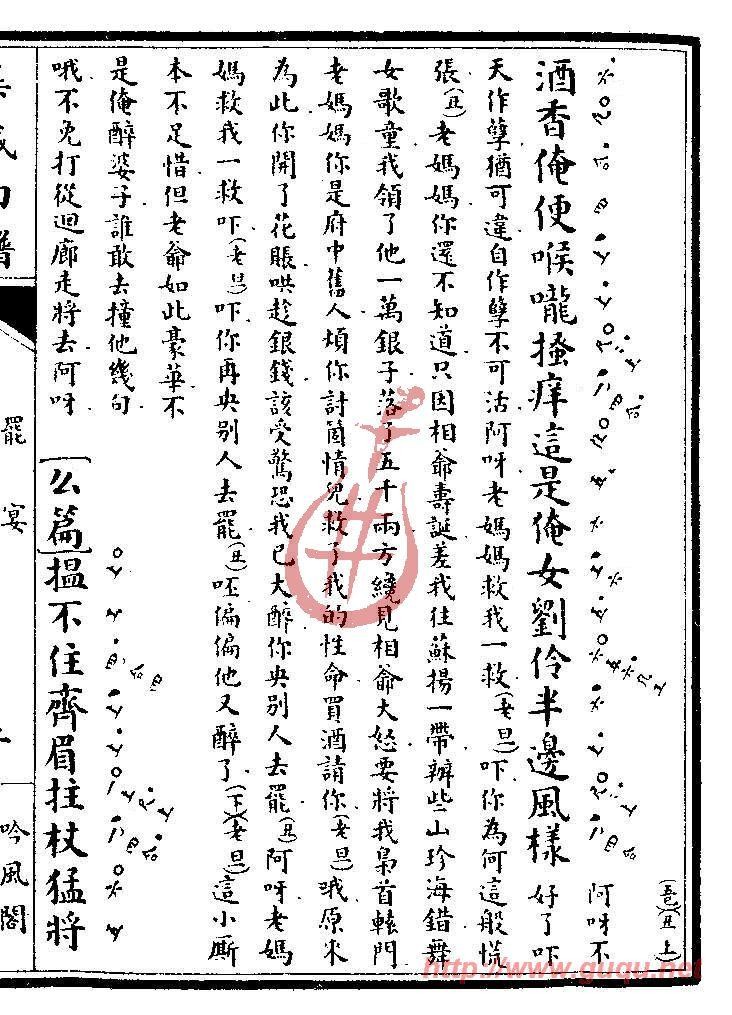 酒香俺便喉嚨搔痒這是俺女劉伶半邊風樣(丑上)阿呀不好了吓
天作孽猶可違自作孽不可活阿呀老媽媽救我一救(老旦)吓你為何這般慌
張(丑)老媽媽你還不知道只因相爺壽誕差我往蘇揚一帶辦些山珍海錯舞
女歌童我領了他一萬銀子落了五千兩方纔見相爺大怒要將我梟首轅門
老媽媽你是府中舊人煩你討箇情兒救了我的性命買酒請你(老旦)哦原來
為此你開了花賬哄趁銀錢該受驚恐我已大醉你央別人去罷(丑)阿呀老媽
媽救我一救吓(老旦)吓你再央別人去罷(丑)呸偏偏他又醉了(下)(老旦)這小厮
本不足惜但老爺如此豪華不
是俺醉婆子誰敢去撞他幾句
哦不免打從迴廊走將去阿呀
[么篇]揾不住齊眉拄杖猛將
罷宴
吟風閣
http://www.guqu.net